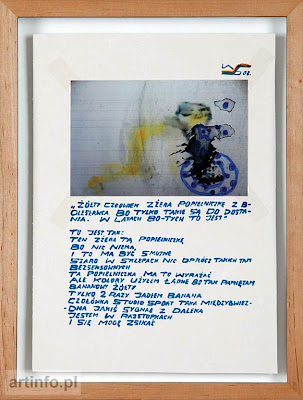 08.
"ŻÓŁTY CZŁOWIEK ZŻERA POPIELNICZKĘ Z B-
OLESŁAWCA BO TYLKO TAKIE SĄ DO DOSTA-
NIA. W LATACH 80-TYCH TO JEST"
TU JEST TAK:
TEN ZŻERA TĄ POPIELNICZKĘ
BO NIC NIEMA,
I TO MA BYĆ SMUTNE
SZARO W SKLEPACH NIC OPRÓCZ TAKICH TAM
BEZSENSOWNYCH
TA POPIELNICZKA MA TO WYRAŻAĆ
ALE KOLORY UŻYŁEM ŁADNE BO TAK PAMIĘTAM
BANANOWY ŻÓŁTY
TYLKO 2 RAZY JADŁEM BANANA
CZOŁÓWKA STUDIO SPORT TAKA MIĘDZYGWIEZ-
DNA JAKIŚ SYGNAŁ Z DALEKA
JESTEM W RAJSTOPKACH
I SIĘ MOGĘ ZSIKAĆ
artinfo.pl